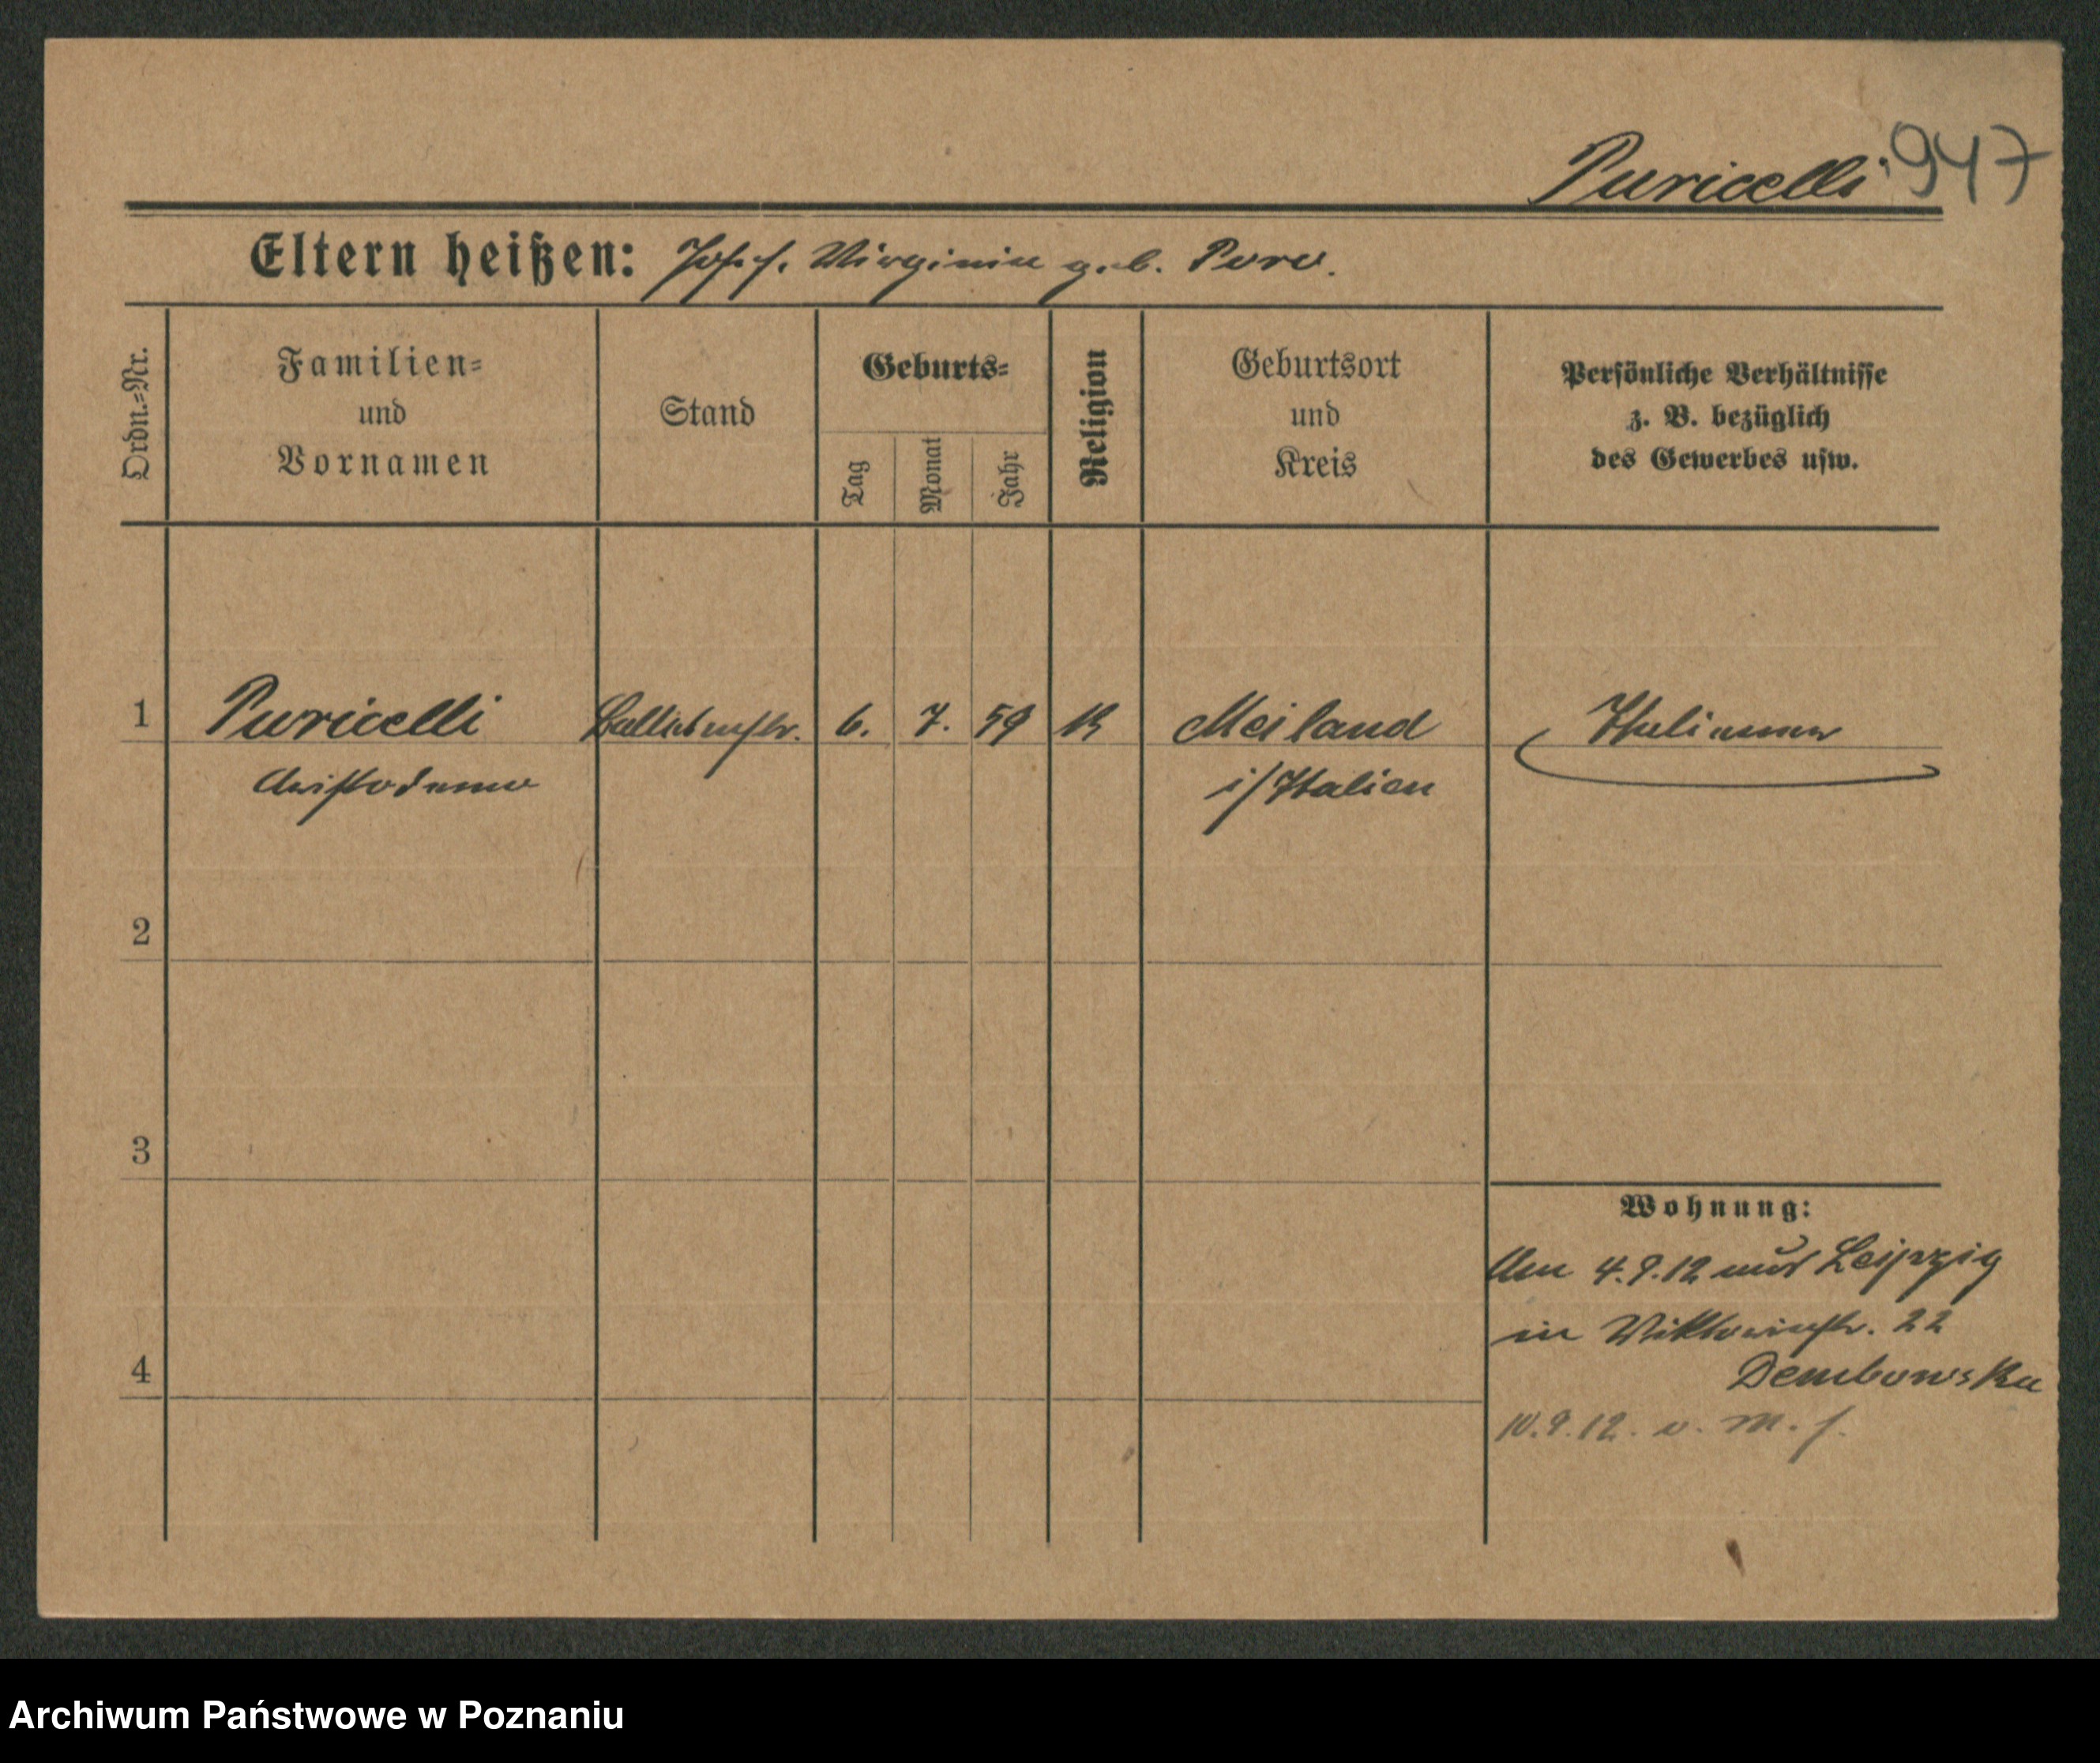 Puricelli 947
Eltern heißen: Josef. Virginia geb. Poro.
Ordn.-Nr.
Familien-
und
Vornamen
Stand
Geburts-
Tag
Monat
Jahr
Religion
Geburtsort
und
Kreis
Persönliche Verhältnisse
z. B. bezüglich
des Gewerbes usw.
1 Puricelli Balletmstr. 6. 7. 59 K Meiland Italiener
Aristodemo i/Italien
2
3
Wohnung:
Am 4.9.12 aus Leipzig
in Viktoriastr. 22
4
Dembowska
10.9.12. v. M. f.
Archiwum Państwowe w Poznaniu